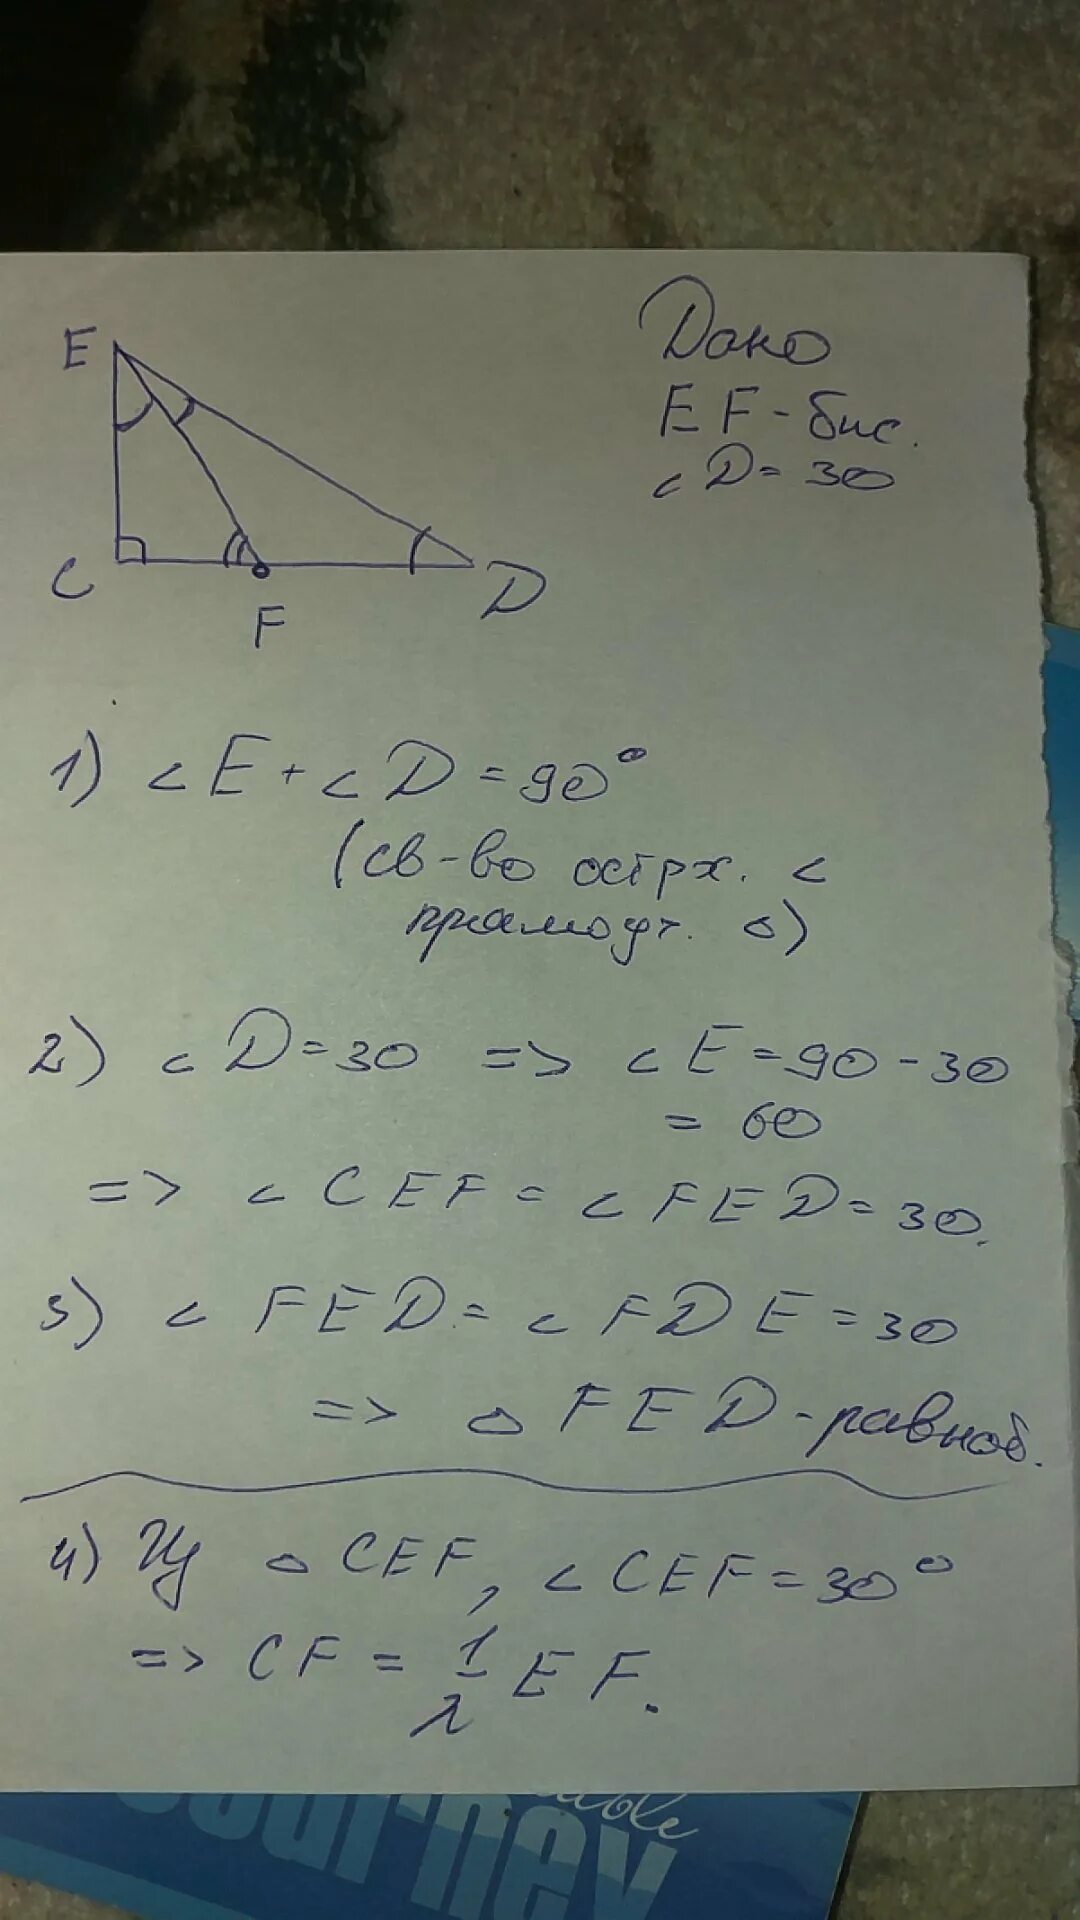 E
C
F
D
Дано
EF - бис.
∠D = 30
1) ∠E + ∠D = 90°
(св-во острх. ∠
прямоуг. Δ)
2) ∠D = 30 => ∠E = 90 - 30
= 60
=> ∠CEF = ∠FED = 30.
3) ∠FED = ∠FDE = 30
=> ΔFED - равноб.
4) Из ΔCEF, ∠CEF = 30°
=> CF = 1/2 EF.